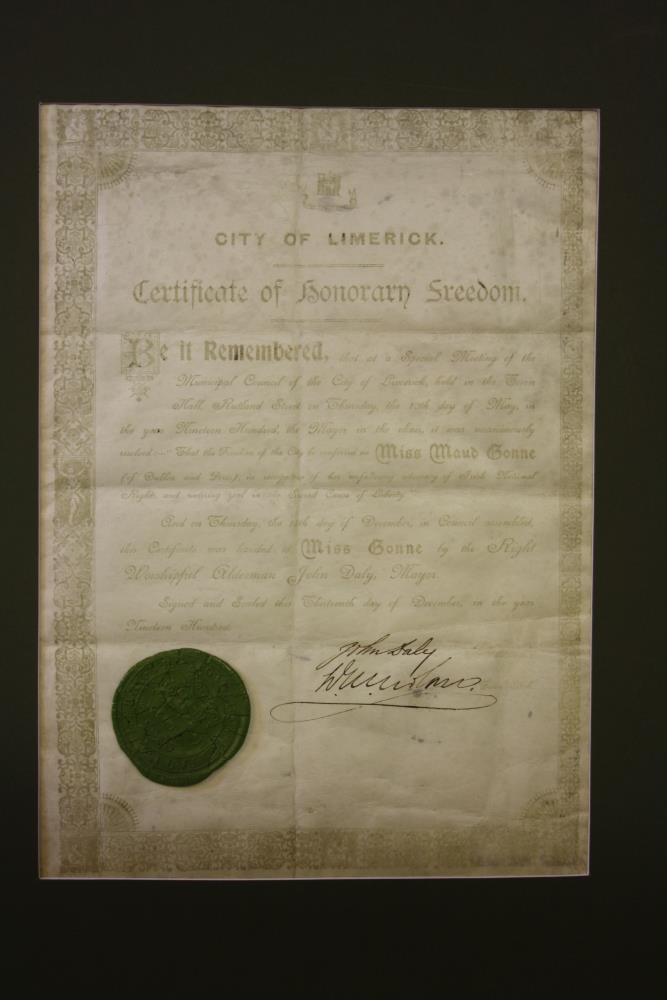 CITY OF LIMERICK.
Certificate of Honorary Freedom.
Be it Remembered, that at a Special Meeting of the
Municipal Council of the City of Limerick, held in the Town
Hall, Rutland Street on Thursday, the 10th day of May, in
the year Nineteen Hundred, the Mayor in the chair, it was unanimously
resolved:—"That the Freedom of the City be conferred on Miss Maud Gonne
(of Dublin and Paris), in recognition of her unfaltering advocacy of Irish National
Rights, and untiring zeal in the Sacred Cause of Liberty."
And on Thursday, the 13th day of December, in Council assembled,
this Certificate was handed to Miss Gonne by the Right
Worshipful Alderman John Daly, Mayor.
Signed and Sealed this Thirteenth day of December, in the year
Nineteen Hundred.
John Daly